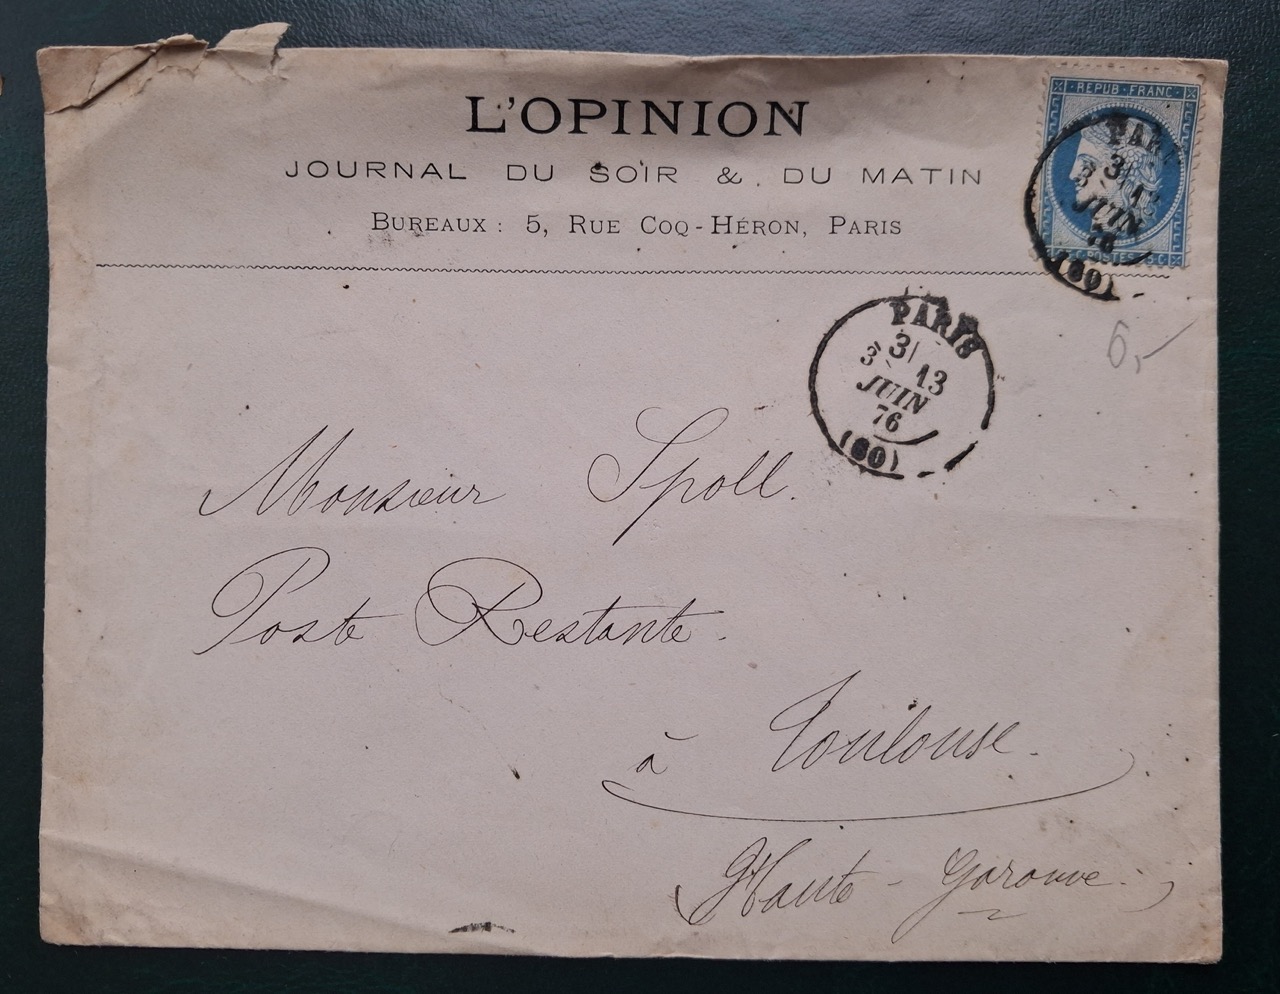 L'OPINION
JOURNAL DU SOIR & DU MATIN
BUREAUX : 5, RUE COQ-HÉRON, PARIS
REPUB · FRANC
PARI
3/
3e 13
JUIN
76
(60)
POSTES
PARIS
3/
3e 13
JUIN
76
(60)
6,-
Monsieur Spoll.
Poste Restante.
à Toulouse.
Haute-Garonne.